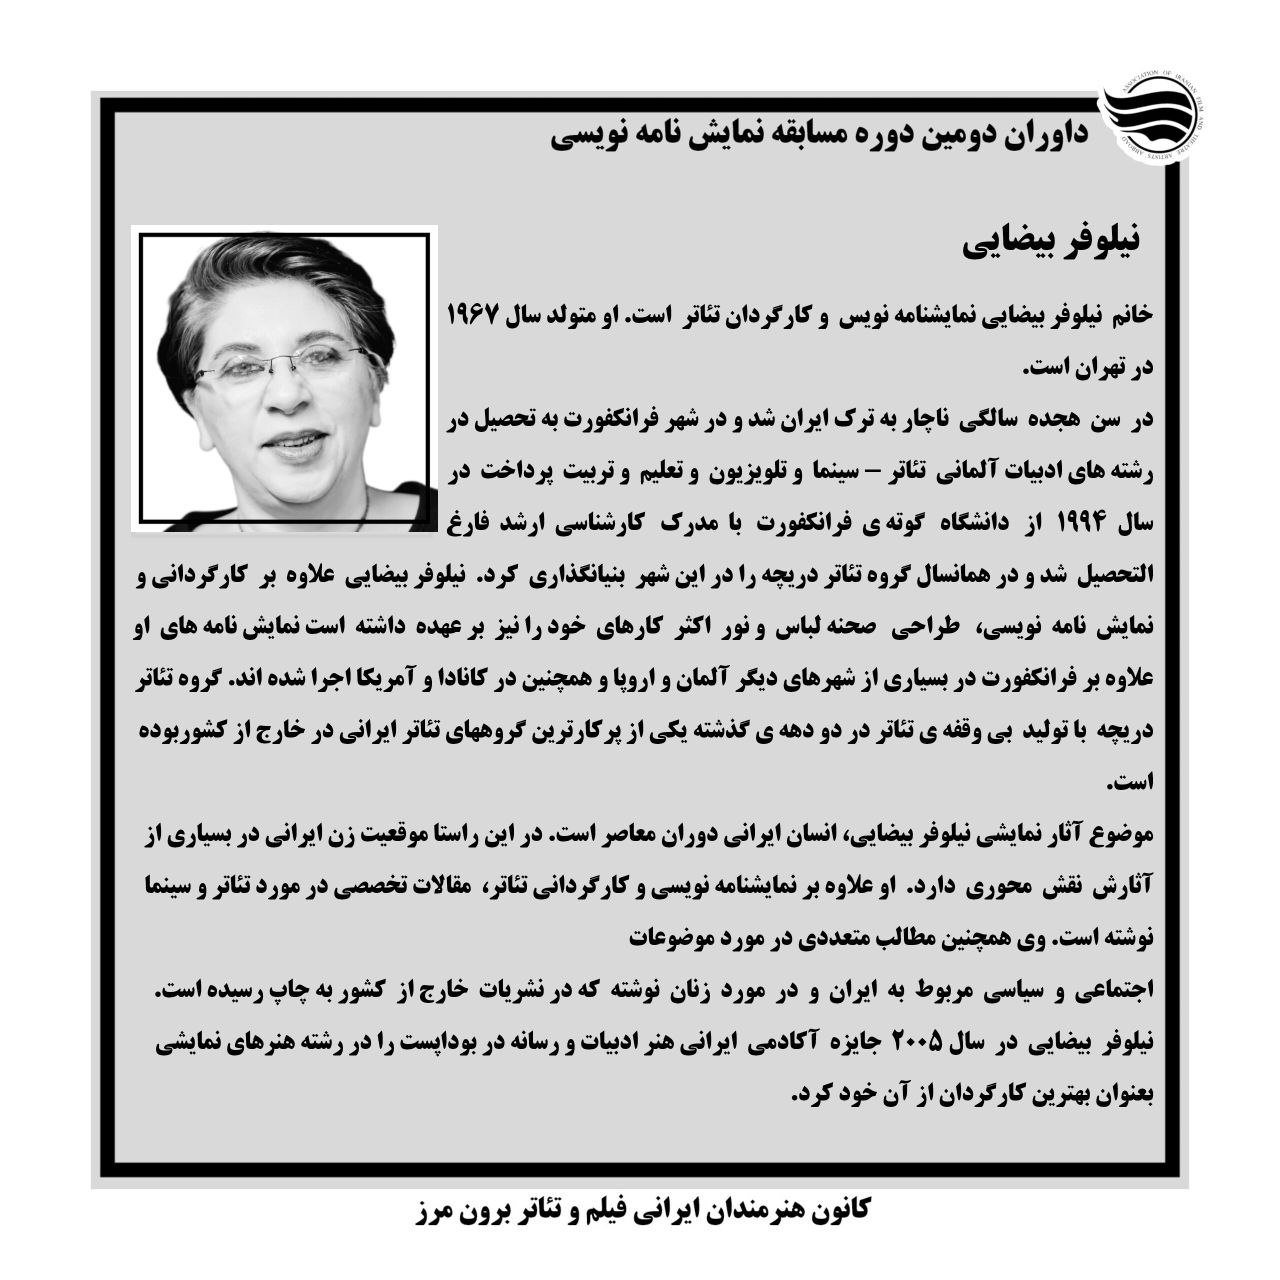 ASSOCIATION OF IRANIAN FILM AND THEATRE ARTISTS ABROAD
داوران دومین دوره مسابقه نمایش نامه نویسی
نیلوفر بیضایی
خانم نیلوفر بیضایی نمایشنامه نویس و کارگردان تئاتر است. او متولد سال ۱۹۶۷
در تهران است.
در سن هجده سالگی ناچار به ترک ایران شد و در شهر فرانکفورت به تحصیل در
رشته های ادبیات آلمانی تئاتر – سینما و تلویزیون و تعلیم و تربیت پرداخت در
سال ۱۹۹۴ از دانشگاه گوته ی فرانکفورت با مدرک کارشناسی ارشد فارغ
التحصیل شد و در همانسال گروه تئاتر دریچه را در این شهر بنیانگذاری کرد. نیلوفر بیضایی علاوه بر کارگردانی و
نمایش نامه نویسی، طراحی صحنه لباس و نور اکثر کارهای خود را نیز بر عهده داشته است نمایش نامه های او
علاوه بر فرانکفورت در بسیاری از شهرهای دیگر آلمان و اروپا و همچنین در کانادا و آمریکا اجرا شده اند. گروه تئاتر
دریچه با تولید بی وقفه ی تئاتر در دو دهه ی گذشته یکی از پرکارترین گروههای تئاتر ایرانی در خارج از کشوربوده
است.
موضوع آثار نمایشی نیلوفر بیضایی، انسان ایرانی دوران معاصر است. در این راستا موقعیت زن ایرانی در بسیاری از
آثارش نقش محوری دارد. او علاوه بر نمایشنامه نویسی و کارگردانی تئاتر، مقالات تخصصی در مورد تئاتر و سینما
نوشته است. وی همچنین مطالب متعددی در مورد موضوعات
اجتماعی و سیاسی مربوط به ایران و در مورد زنان نوشته که در نشریات خارج از کشور به چاپ رسیده است.
نیلوفر بیضایی در سال ۲۰۰۵ جایزه آکادمی ایرانی هنر ادبیات و رسانه در بوداپست را در رشته هنرهای نمایشی
بعنوان بهترین کارگردان از آن خود کرد.
کانون هنرمندان ایرانی فیلم و تئاتر برون مرز